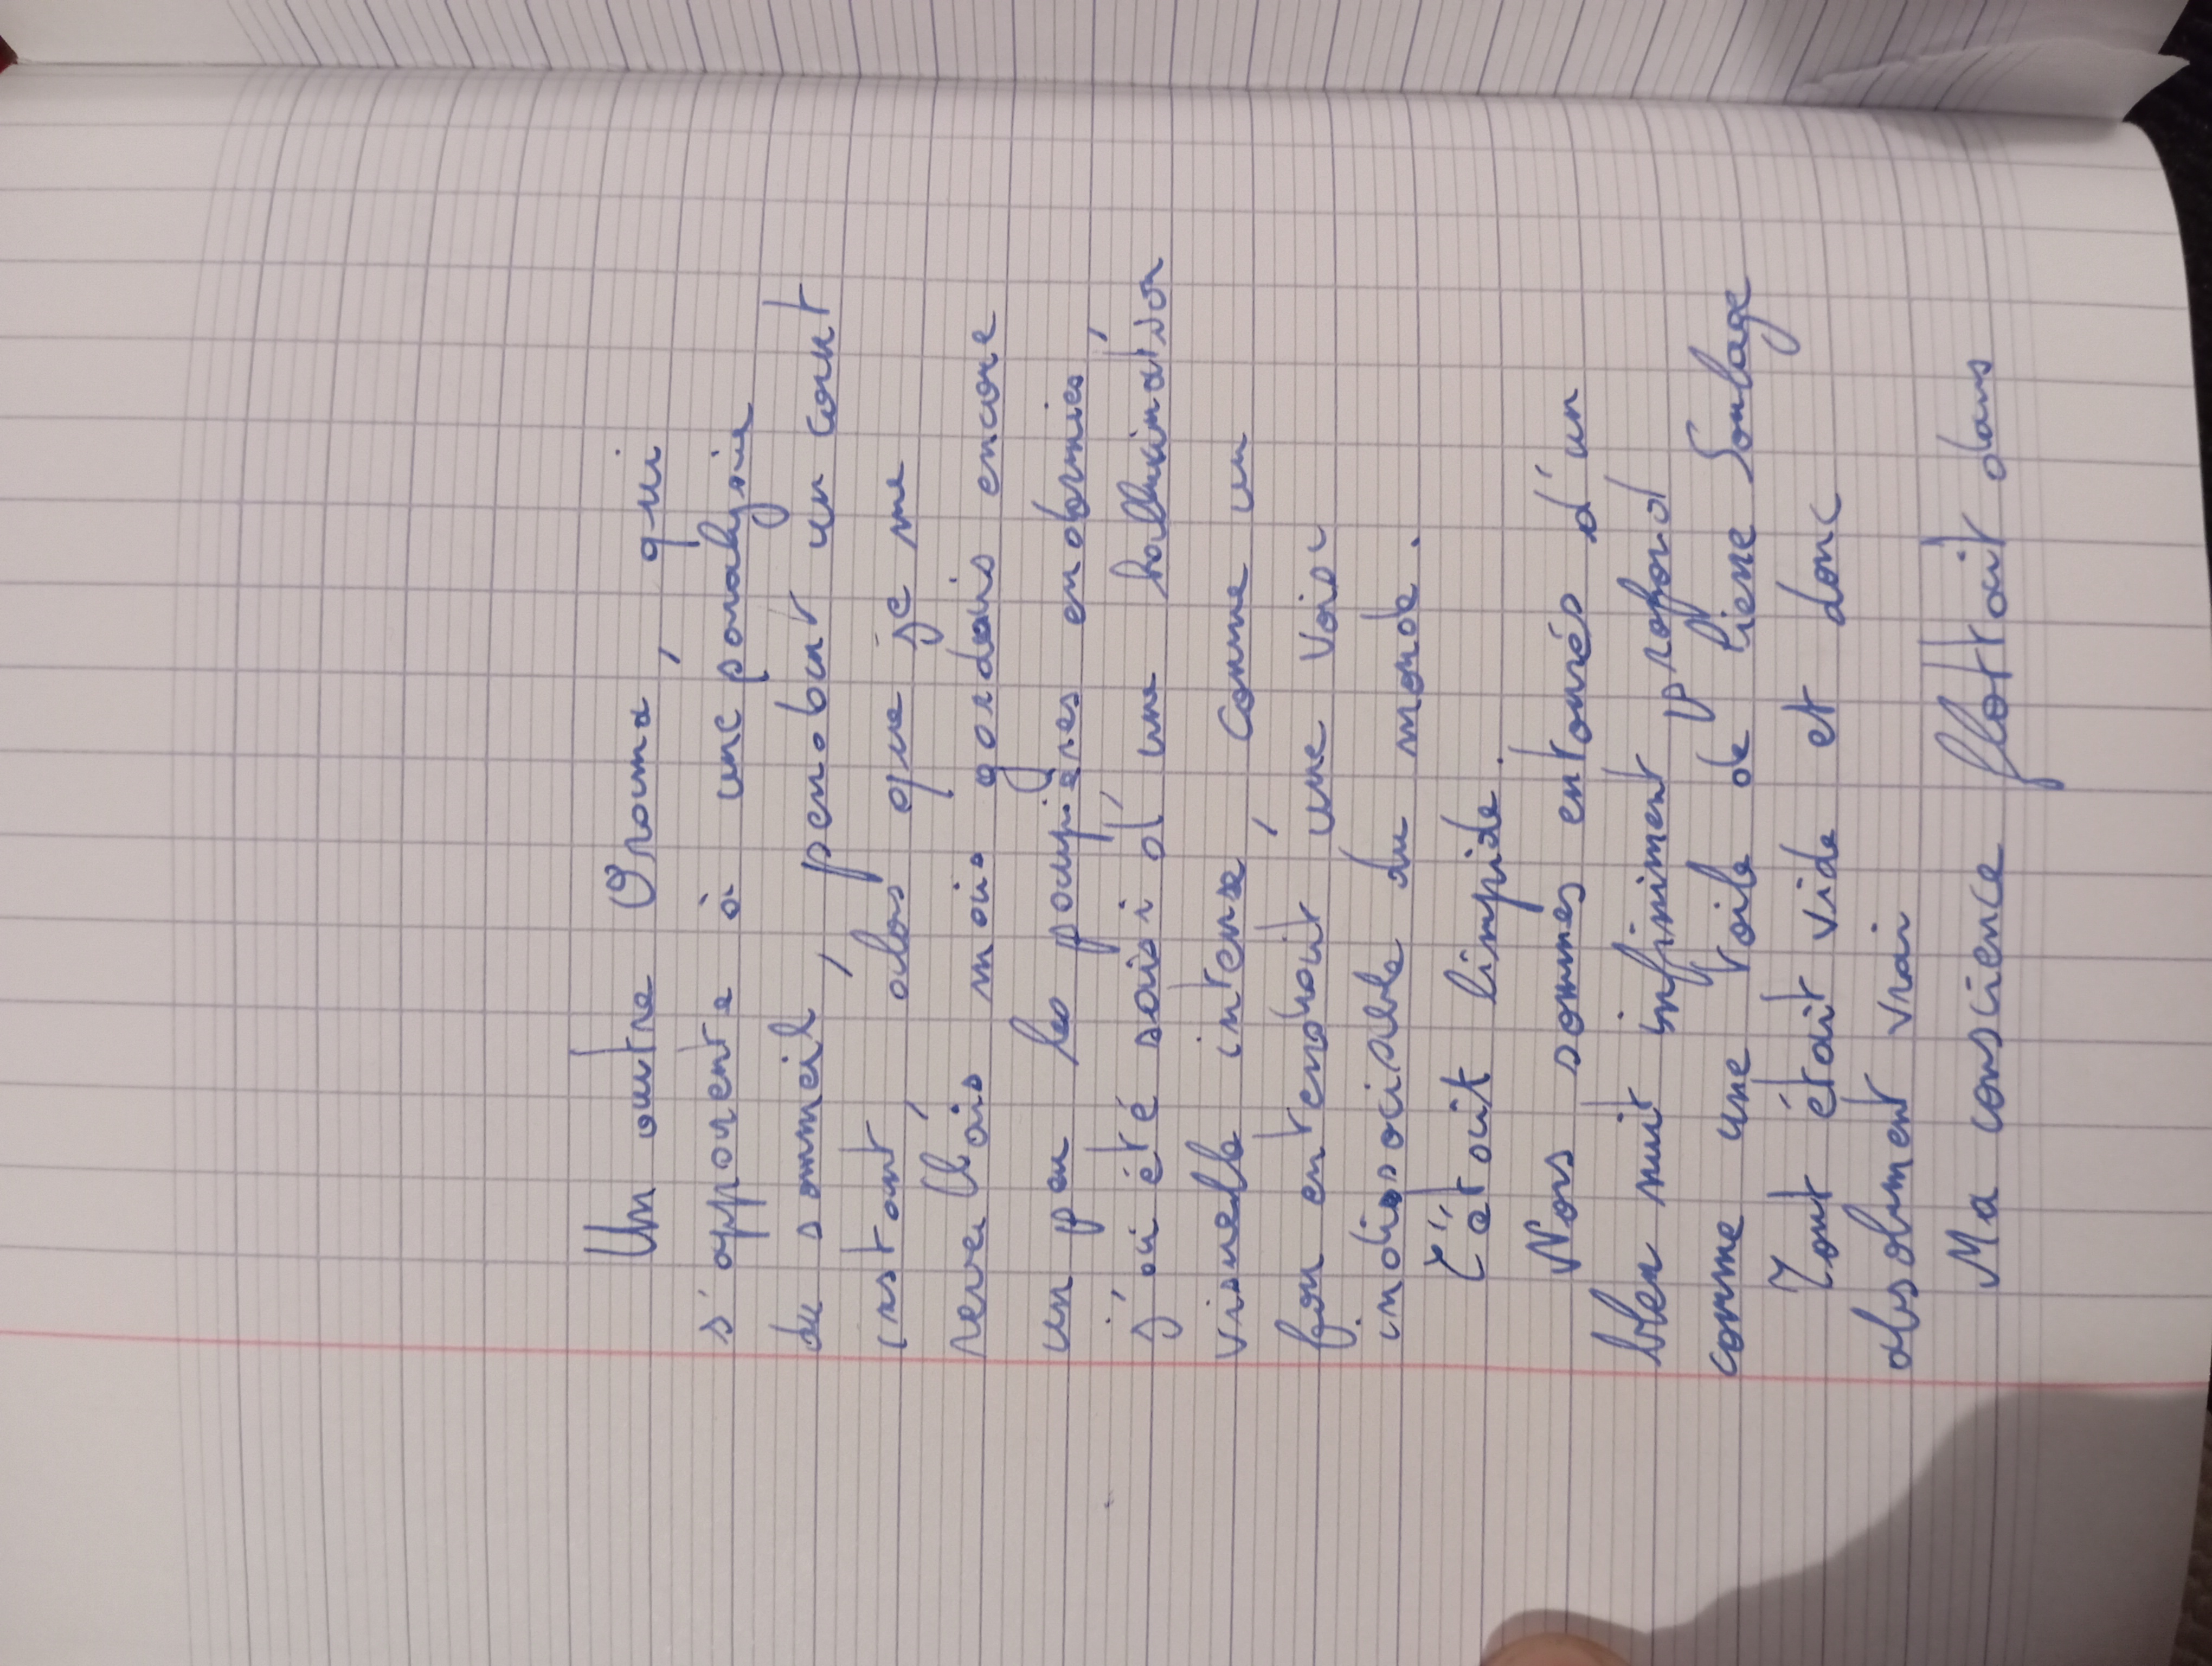 Un autre Orama, qui
s'apparente à une paralysie
du sommeil, pendant un court
instant, alors que je me
reveillais mais gardais encore
un peu les paupières endormies,
j'ai été saisi d'une hallucination
visuelle intense, comme un
fou entendrait une voix
indissociable du monde.
C'était limpide.
Nous sommes entourés d'un
bleu nuit infiniment profond
comme une toile de Pierre Soulage
Tout était vide et donc
absolument vrai
Ma conscience flottait dans